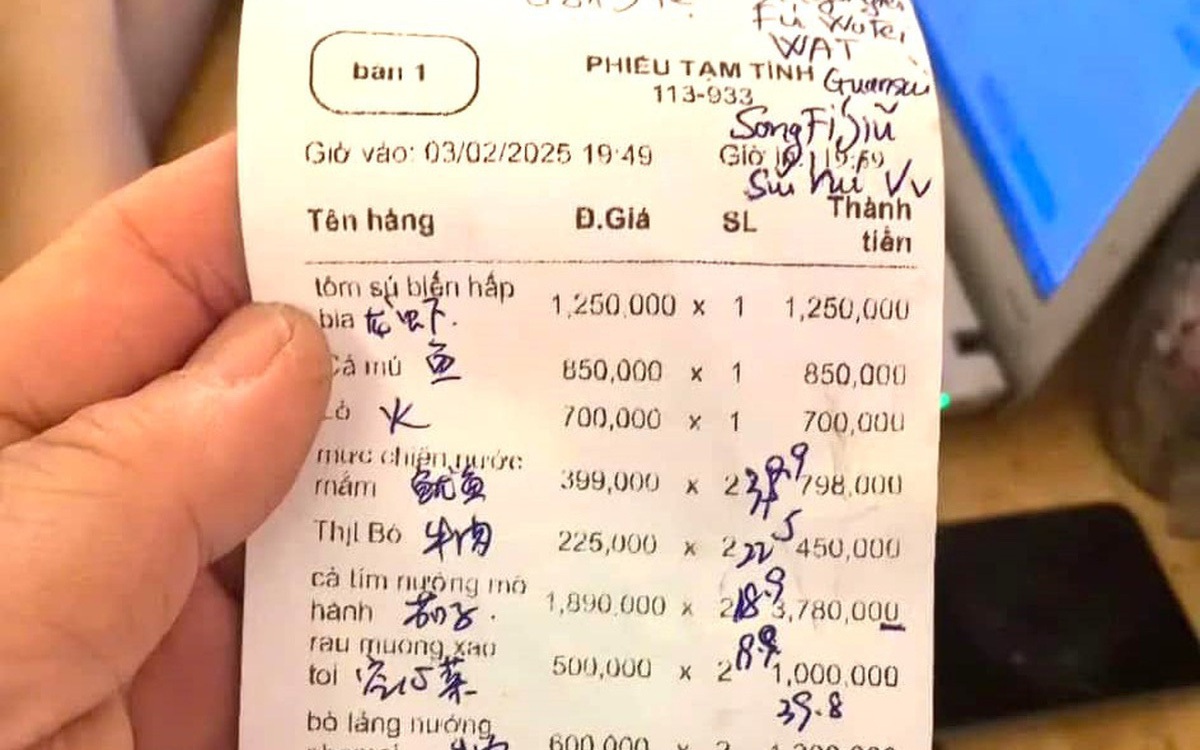 Fu WuTei
WAT
bàn 1
PHIẾU TẠM TÍNH
Guansui
113-933
SongFi Siũ
Giờ vào: 03/02/2025 19:49
Giờ
Sui Vv
Tên hàng Đ.Giá SL Thành tiền
tôm sú biển hấp
bia 1,250,000 x 1 1,250,000
Cá mú 鱼 850,000 x 1 850,000
火 700,000 x 1 700,000
mực chiên nước
mắm 鱿鱼 399,000 x 2 399 798,000
Thịt Bò 牛肉 225,000 x 2 225 450,000
cà tím nướng mỡ
hành 茄子. 1,890,000 x 2 189 3,780,000
rau muong xao
toi 空心菜 500,000 x 2 89 1,000,000
39.8
bò lảng nướng
600,000 x 2